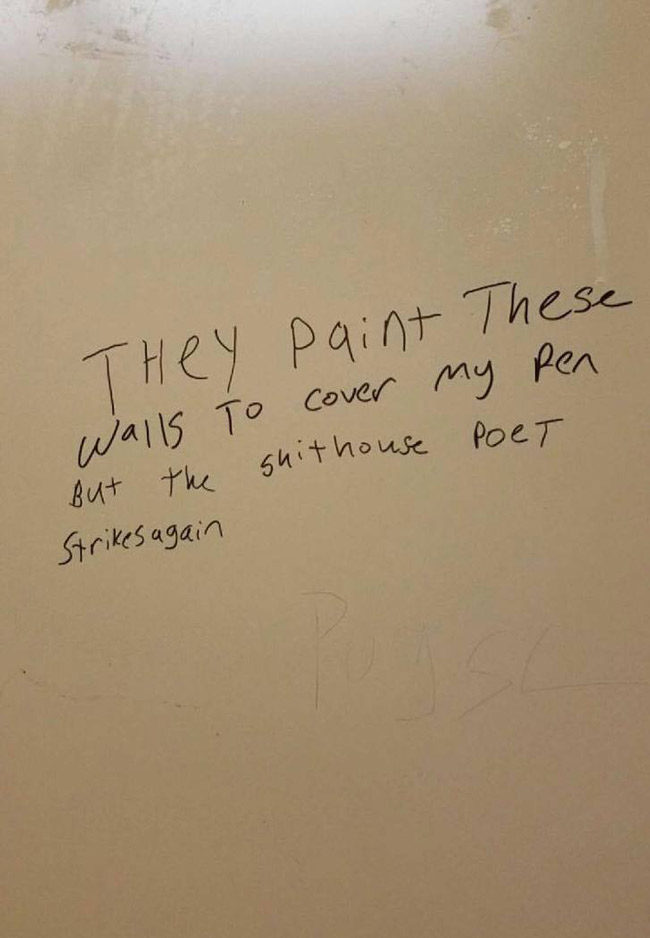 THey paint These
walls To cover my pen
But the shithouse PoeT
strikes again